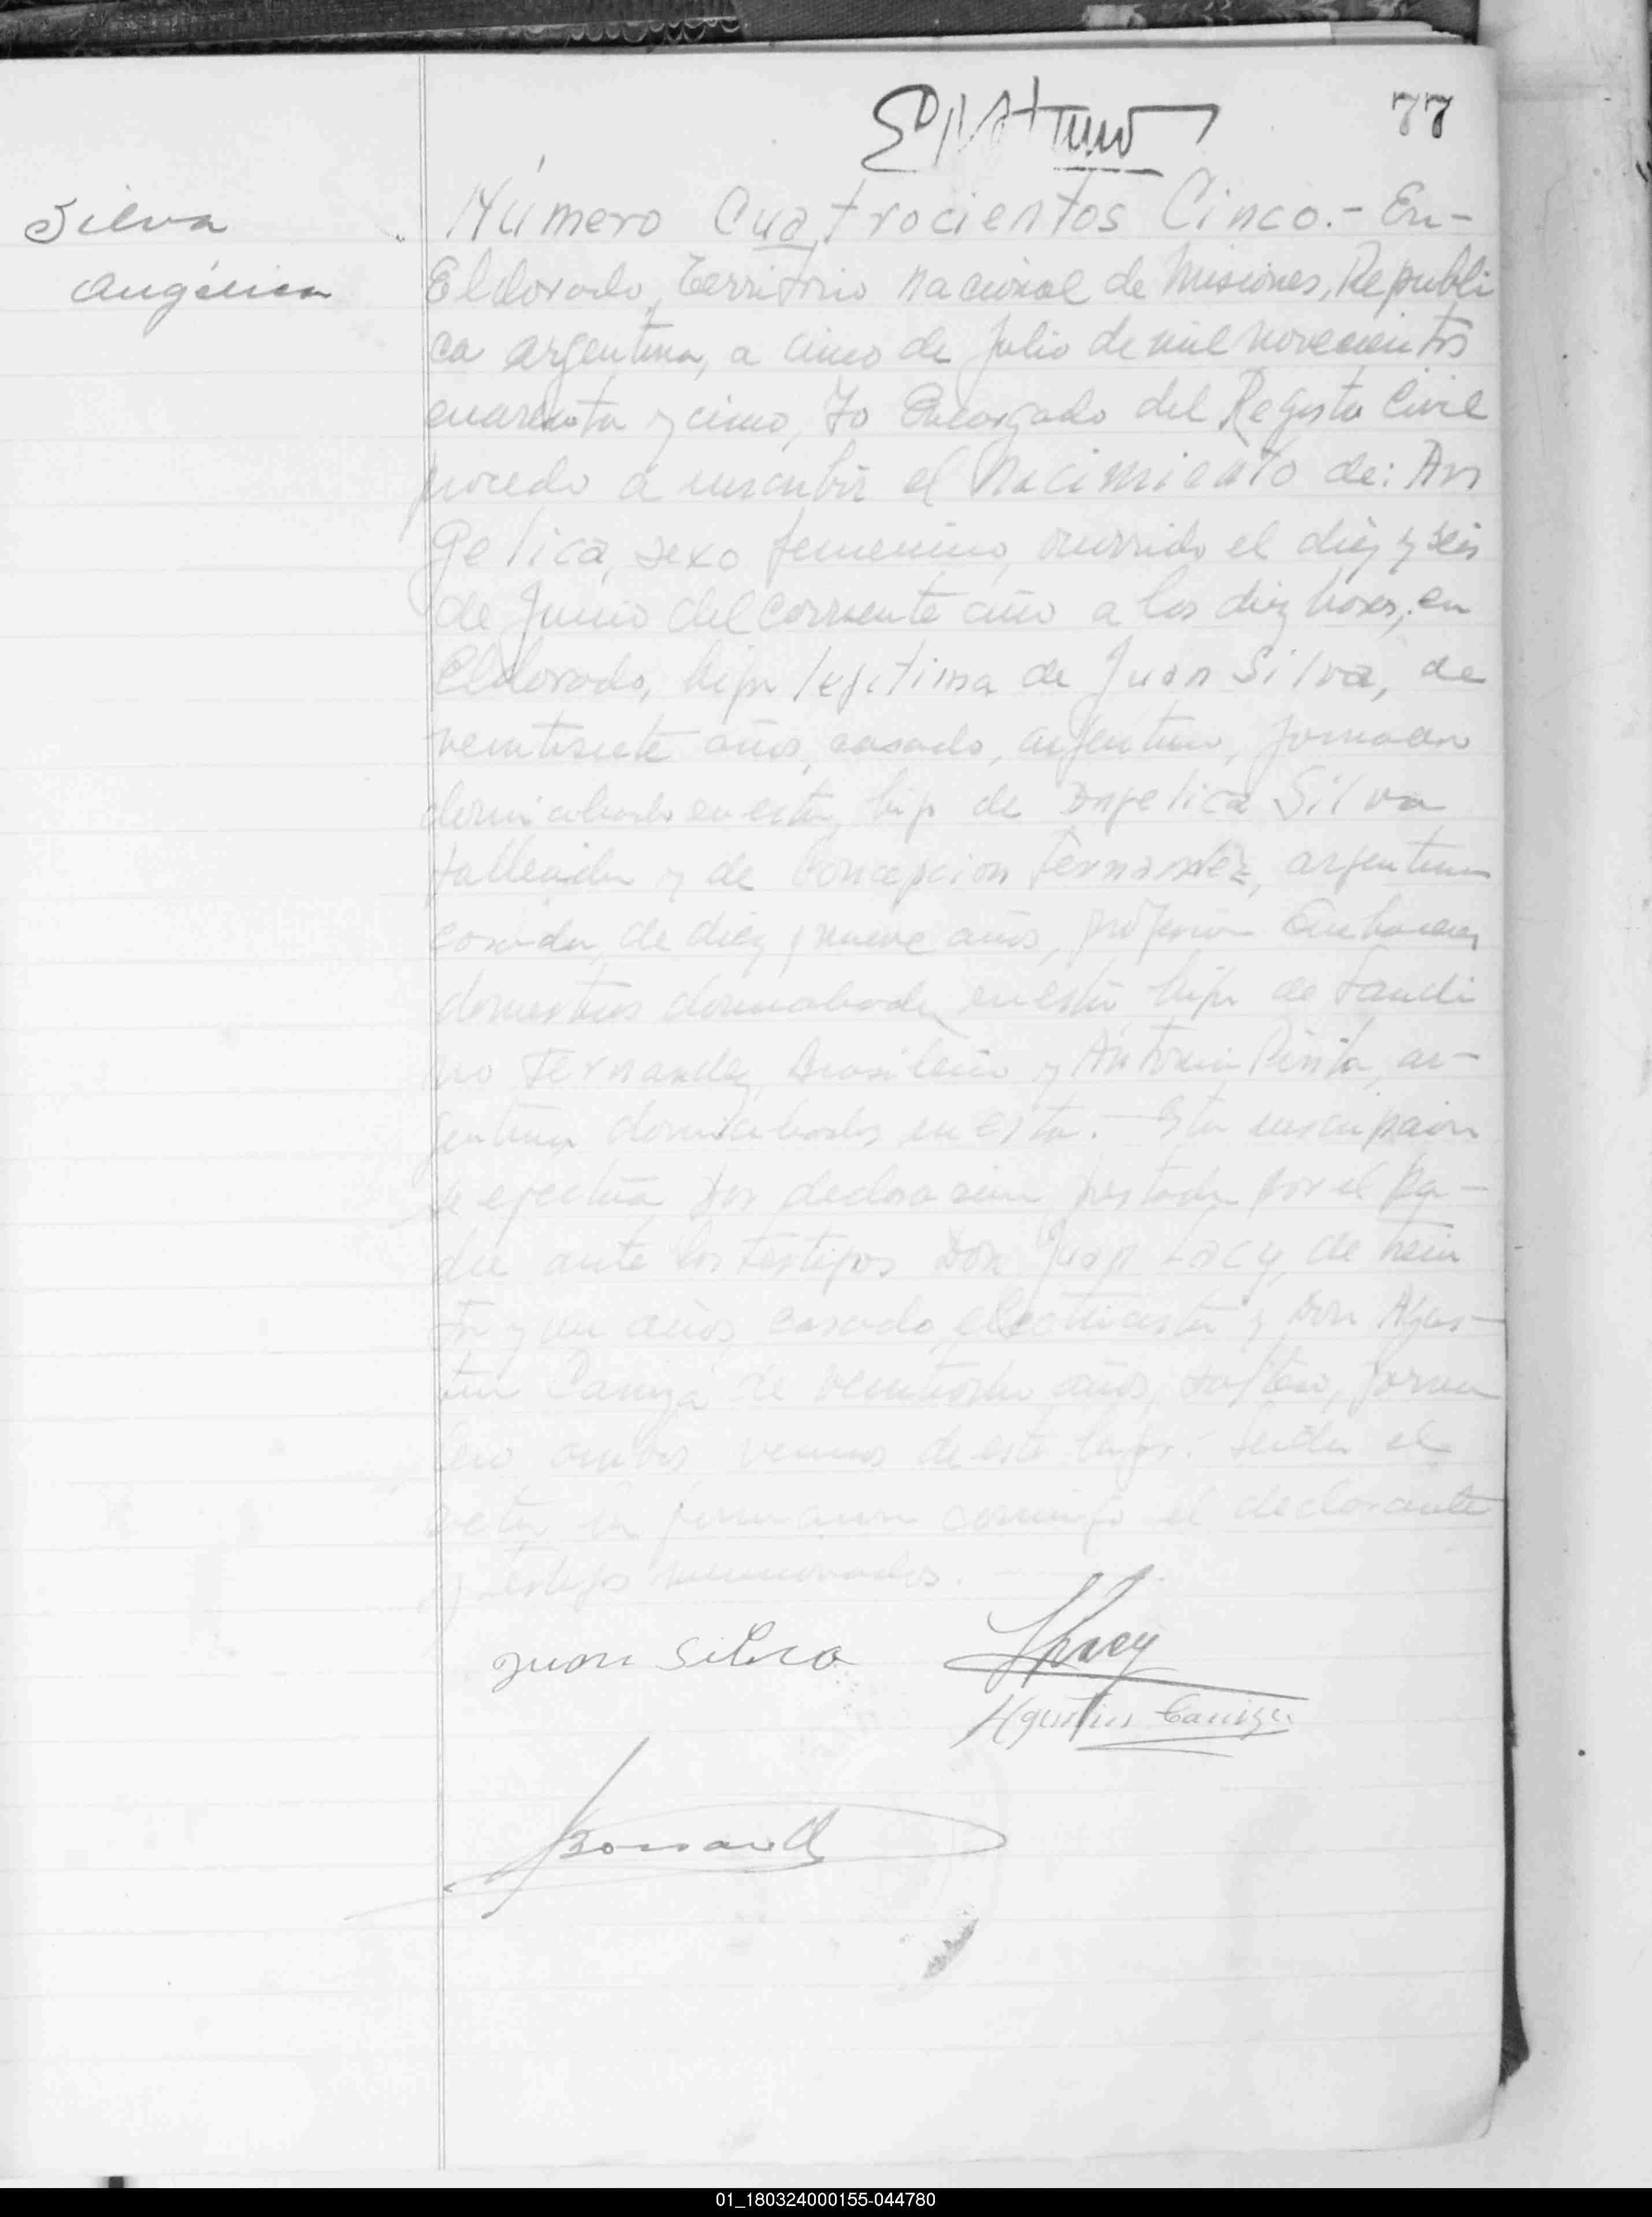 77
Silva
Angélica
Número Cuatrocientos Cinco.- En-
Eldorado, Territorio Nacional de Misiones, Republi
ca argentina, a cinco de Julio de mil novecientos
cuarenta y cinco, Yo Encargado del Registro Civil
procedo a inscribir el Nacimiento de: An
gelica, sexo femenino, ocurrido el diez y seis
de Junio del corriente año a las diez horas, en
Eldorado, hija legitima de Juan Silva, de
veintisiete años, casado, argentino, jornalero
domiciliado en esta, hijo de Angelica Silva
fallecida y de Concepcion Fernandez, argentina
casada, de diez y nueve años, profesión Quehaceres
domesticos domiciliada en esta hija de
no Fernandez Brasileño y Antonia Pinto, ar-
gentina domiciliados en esta.- Esta inscripcion
se efectúa por declaracion prestada por el Pa-
dre ante los testigos Don Juan Lacy, de trein
ta y un años, casado, electricista y Don Agus-
tin Caniza de veintiocho años, soltero, jorna
lero, ambos vecinos de este lugar. Leida el
acta la firmaron conmigo el declarante
y testigos mencionados.
Juan Silva
Agustin Caniza
01_180324000155-044780